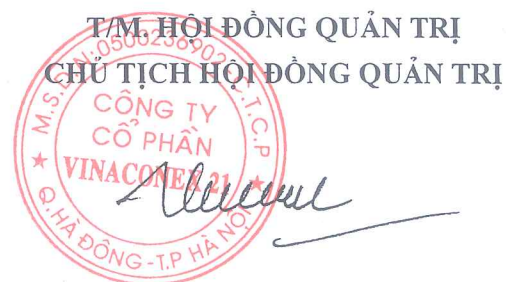 T/M. HỘI ĐỒNG QUẢN TRỊ
CHỦ TỊCH HỘI ĐỒNG QUẢN TRỊ
M.S.D.N:0500236902-C.T.C.P
CÔNG TY
CỔ PHẦN
VINACONEX 21
Q.HÀ ĐÔNG-T.P HÀ NỘI